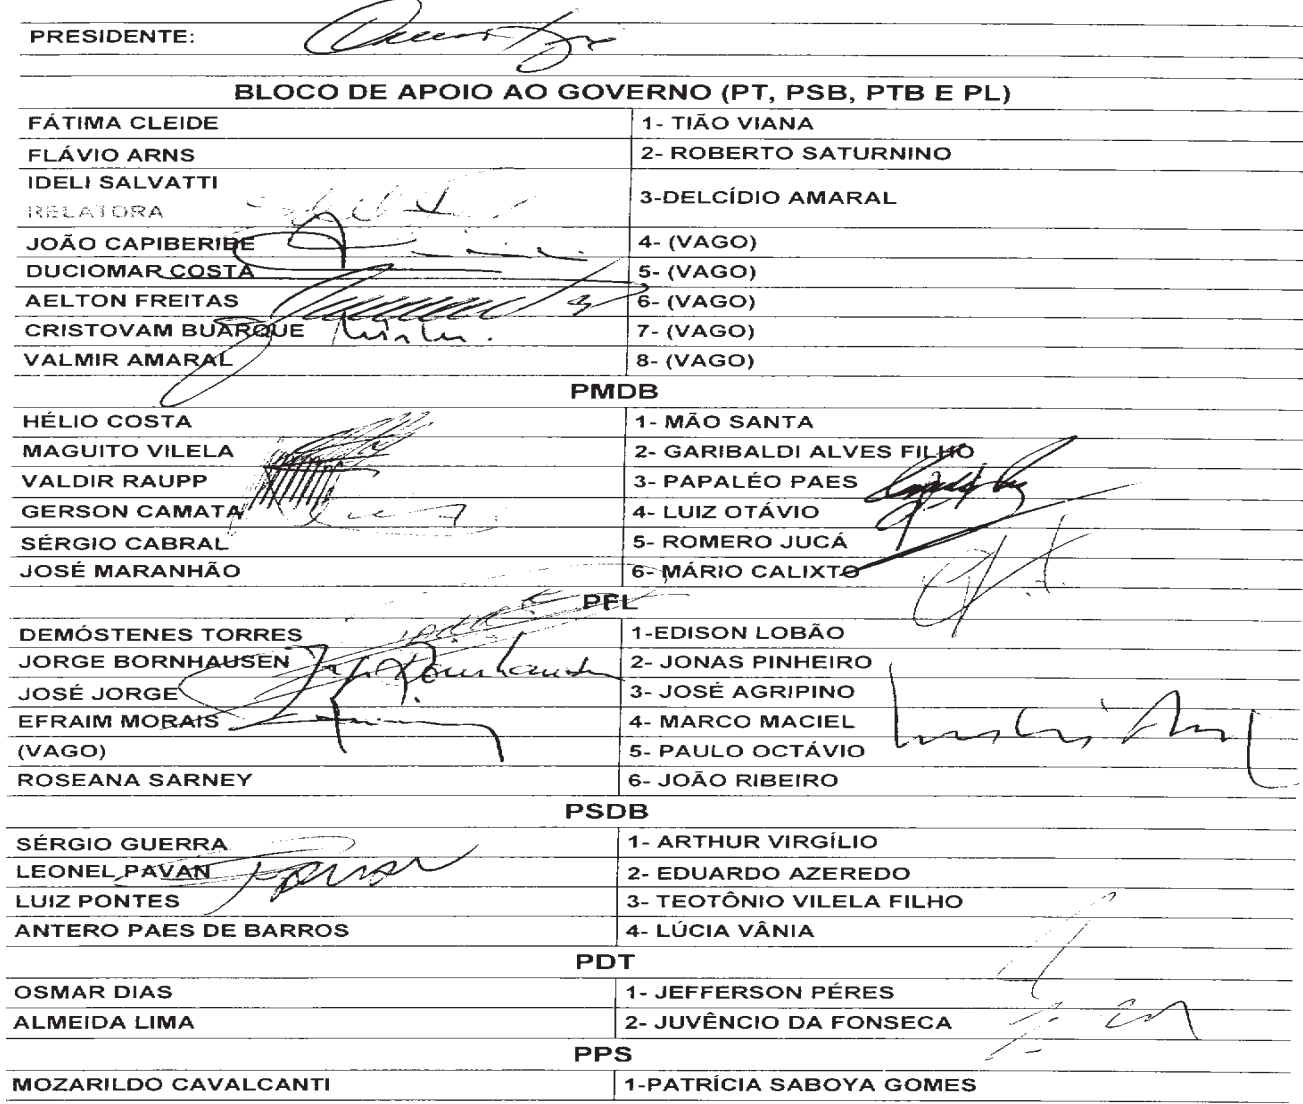 PRESIDENTE:
BLOCO DE APOIO AO GOVERNO (PT, PSB, PTB E PL)
FÁTIMA CLEIDE 1- TIÃO VIANA
FLÁVIO ARNS 2- ROBERTO SATURNINO
IDELI SALVATTI
RELATORA 3-DELCÍDIO AMARAL
JOÃO CAPIBERIBE 4- (VAGO)
DUCIOMAR COSTA 5- (VAGO)
AELTON FREITAS 6- (VAGO)
CRISTOVAM BUARQUE 7- (VAGO)
VALMIR AMARAL 8- (VAGO)
PMDB
HÉLIO COSTA 1- MÃO SANTA
MAGUITO VILELA 2- GARIBALDI ALVES FILHO
VALDIR RAUPP 3- PAPALÉO PAES
GERSON CAMATA 4- LUIZ OTÁVIO
SÉRGIO CABRAL 5- ROMERO JUCÁ
JOSÉ MARANHÃO 6- MÁRIO CALIXTO
PFL
DEMÓSTENES TORRES 1-EDISON LOBÃO
JORGE BORNHAUSEN 2- JONAS PINHEIRO
JOSÉ JORGE 3- JOSÉ AGRIPINO
EFRAIM MORAIS 4- MARCO MACIEL
(VAGO) 5- PAULO OCTÁVIO
ROSEANA SARNEY 6- JOÃO RIBEIRO
PSDB
SÉRGIO GUERRA 1- ARTHUR VIRGÍLIO
LEONEL PAVAN 2- EDUARDO AZEREDO
LUIZ PONTES 3- TEOTÔNIO VILELA FILHO
ANTERO PAES DE BARROS 4- LÚCIA VÂNIA
PDT
OSMAR DIAS 1- JEFFERSON PÉRES
ALMEIDA LIMA 2- JUVÊNCIO DA FONSECA
PPS
MOZARILDO CAVALCANTI 1-PATRÍCIA SABOYA GOMES